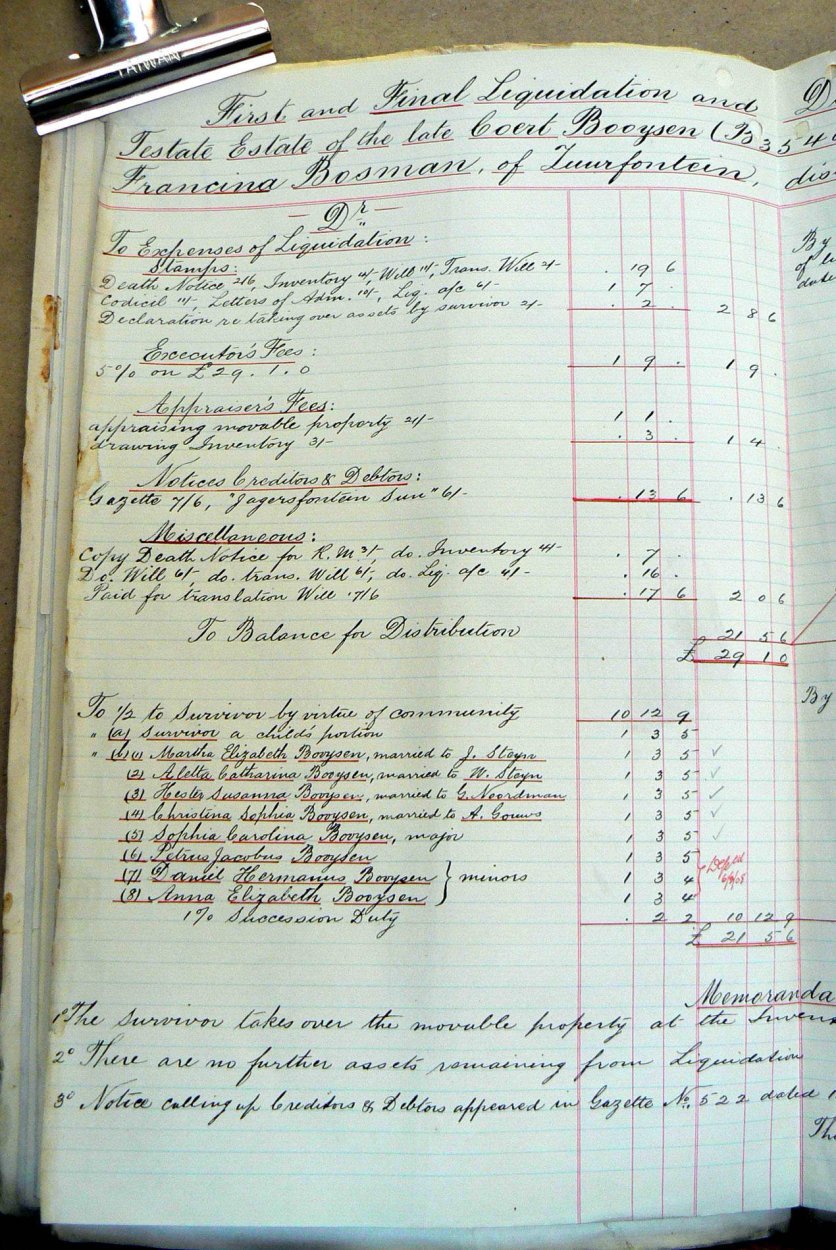 TAIWAN
First and Final Liquidation and
Testate Estate of the late Coert Booysen (B3544
Francina Bosman, of Zuurfontein,
— Dr —
To Expenses of Liquidation:
Stamps:
Death Notice 2/6, Inventory 4/-, Will 1/-, Trans. Will 2/- . 19 6
Codicil 1/-, Letters of Adm. 10/-, Liq. a/c 6/- 1 7
Declaration re taking over assets by survivor 2/- . 2 . 2 8 6
Executor's Fees:
5% on £29.1.0 1 9 . 1 9 .
Appraiser's Fees:
appraising movable property 21/- 1 1 .
drawing Inventory 3/- . 3 . 1 4 .
Notices Creditors & Debtors:
Gazette 7/6, "Jagersfontein Sun" 6/- . 13 6 . 13 6
Miscellaneous:
Copy Death Notice for R.M 3/-, do. Inventory 4/- . 7 .
Do. Will 6/-, do. trans. Will 6/-, do. Liq. a/c 4/- . 16 .
Paid for translation Will 17/6 . 17 6 2 0 6
To Balance for Distribution 21 5 6
£ 29 1 0
To 1/2 to Survivor by virtue of community 10 12 9
" (a) Survivor a child's portion 1 3 5
" (b) (1) Martha Elizabeth Booysen, married to J. Steyn 1 3 5 ✓
(2) Aletta Catharina Booysen, married to W. Steyn 1 3 5 ✓
(3) Hester Susanna Booysen, married to G. Noordman 1 3 5 ✓
(4) Christina Sophia Booysen, married to A. Gouws 1 3 5 ✓
(5) Sophia Carolina Booysen, major 1 3 5 ✓
(6) Petrus Jacobus Booysen 1 3 5
(7) Daniel Hermanus Booysen } minors 1 3 4
(8) Anna Elizabeth Booysen 1 3 4
1% Succession Duty . 2 2 10 12 9
£ 21 5 6
Memoranda
1° The Survivor takes over the movable property at the
2° There are no further assets remaining from Liquidation
3° Notice calling up Creditors & Debtors appeared in Gazette No. 522 dated
By
By